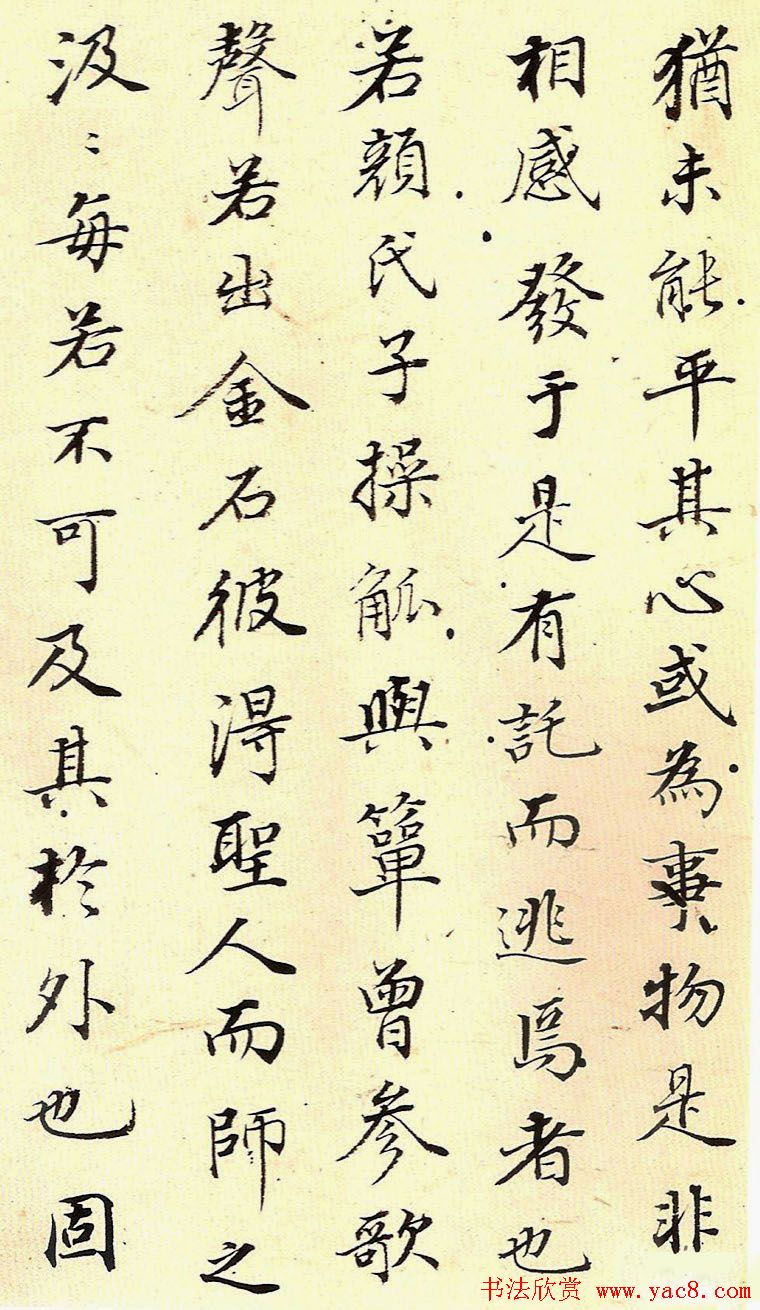 猶未能平其心或為事物是非
相感發于是有託而逃焉者也
若顏氏子操觚與簞曾參歌
聲若出金石彼得聖人而師之
汲〻每若不可及其於外也固
书法欣赏 www.yac8.com